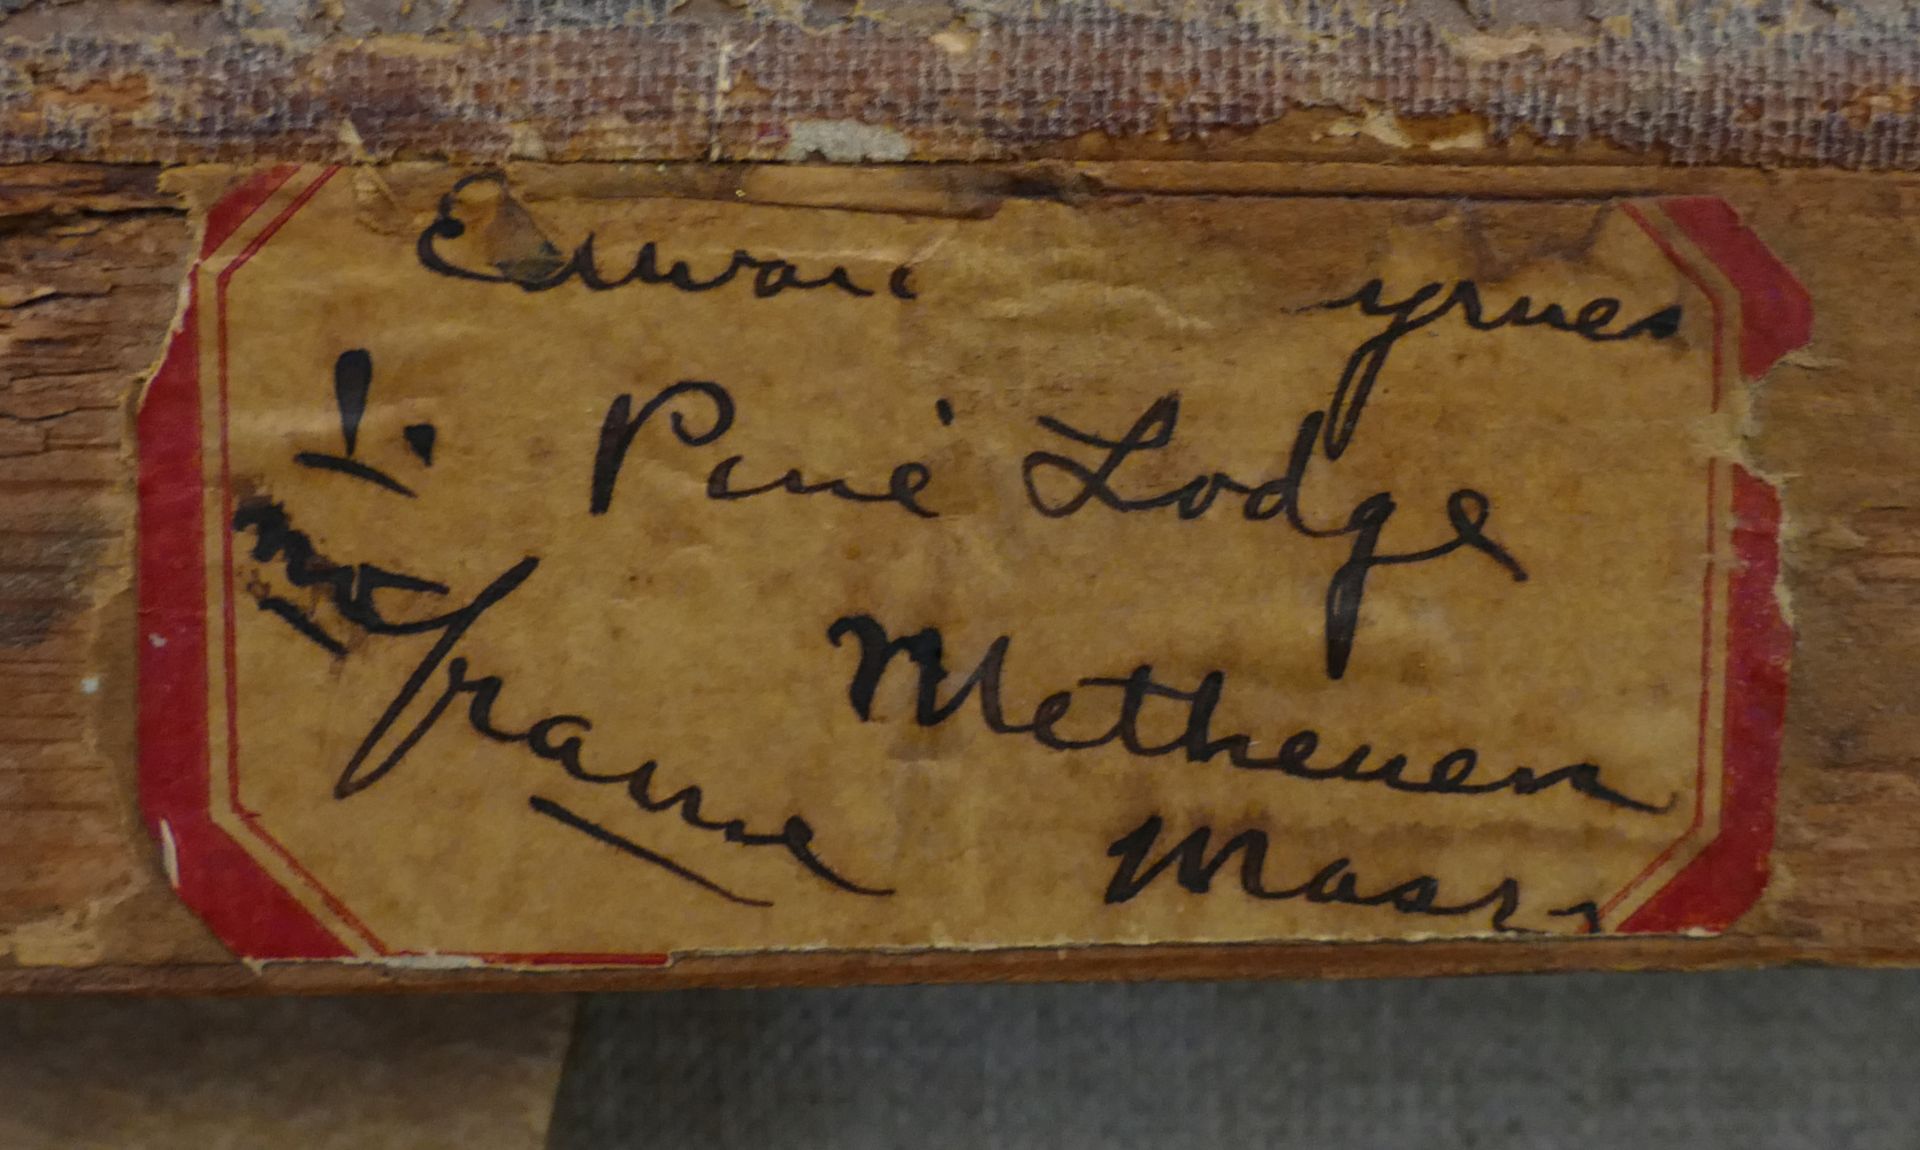 Edward
1.
Pine Lodge
no frame
Methuen
Mass.